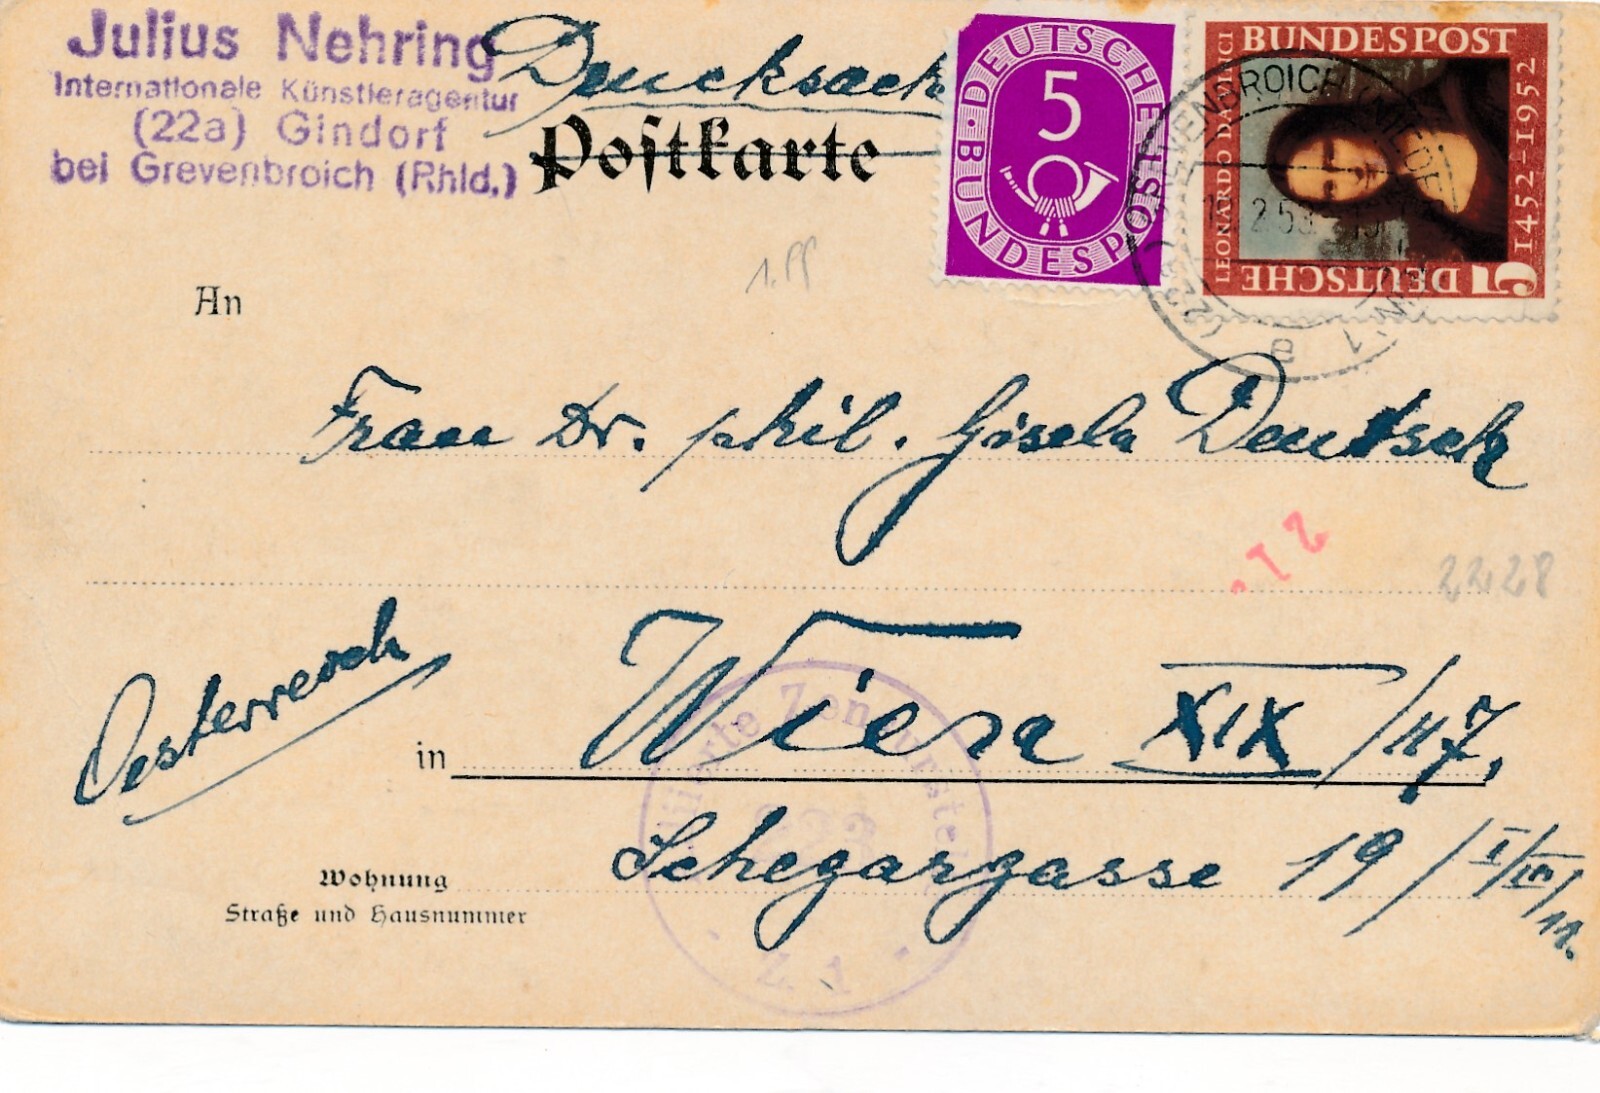 Julius Nehring
Internationale Künstleragentur
(22a) Gindorf
bei Grevenbroich (Rhld.)
Drucksache
Postkarte
DEUTSCHE BUNDESPOST
5
BUNDESPOST
LEONARDO DA VINCI
1452-1952
5 DEUTSCHE
GREVENBROICH (NIEDERRHEIN) 1
a
An
Frau Dr. phil. Gisela Deutsch
22.28
Oesterreich
in Wien XIX/117,
Zensurstelle
Wohnung
Straße und Hausnummer
Schegargasse 19/I/III/11.